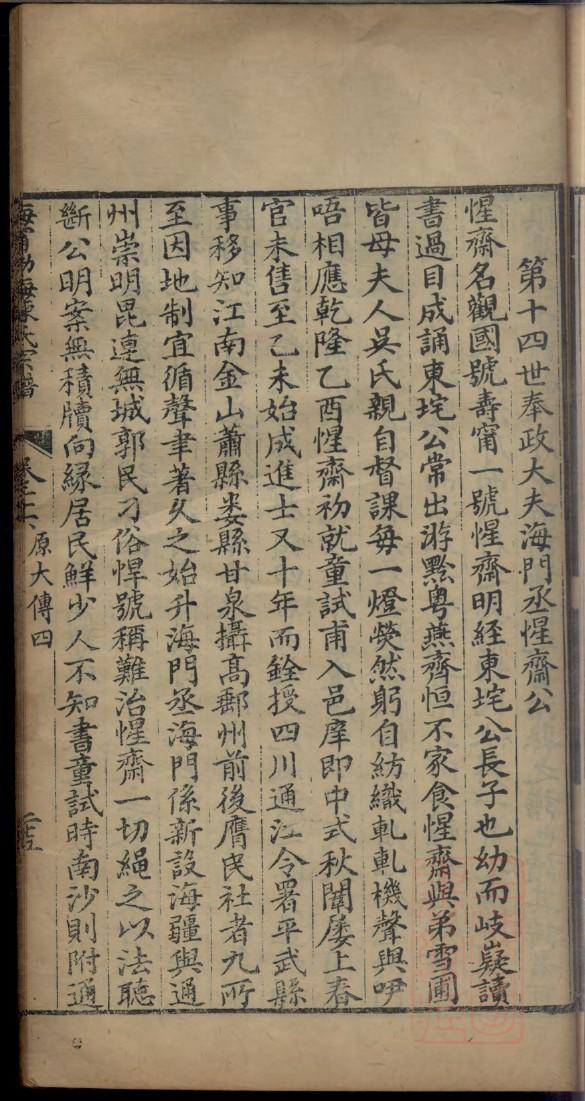 第十四世奉政大夫海門丞惺齋公
惺齋名觀國號壽甯一號惺齋明経東垞公長子也幼而岐嶷讀
書過目成誦東垞公常出游黔粤燕齊恒不家食惺齋與弟雪圃
皆母夫人吳氏親自督課每一燈熒然躬自紡織軋軋機聲與咿
唔相應乾隆乙酉惺齋初就童試甫入邑庠即中式秋闈屡上春
官未售至乙未始成進士又十年而銓授四川通江令署平武縣
事移知江南金山蕭縣婁縣甘泉攝高郵州前後膺民社者九所
至因地制宜循聲聿著久之始升海門丞海門係新設海疆與通
州崇明毘連無城郭民刁俗悍號稱難治惺齋一切繩之以法聽
斷公明案無積牘向緣居民鮮少人不知書童試時南沙則附通
海甯渤海陳氏宗譜 原大傳四